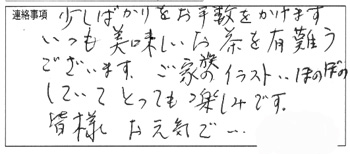 連絡事項
少しばかりをお手数をかけます
いつも美味しいお茶を有難う
ございます。ご家族のイラスト、ほのぼの
していてとっても楽しみです。
皆様お元気で…